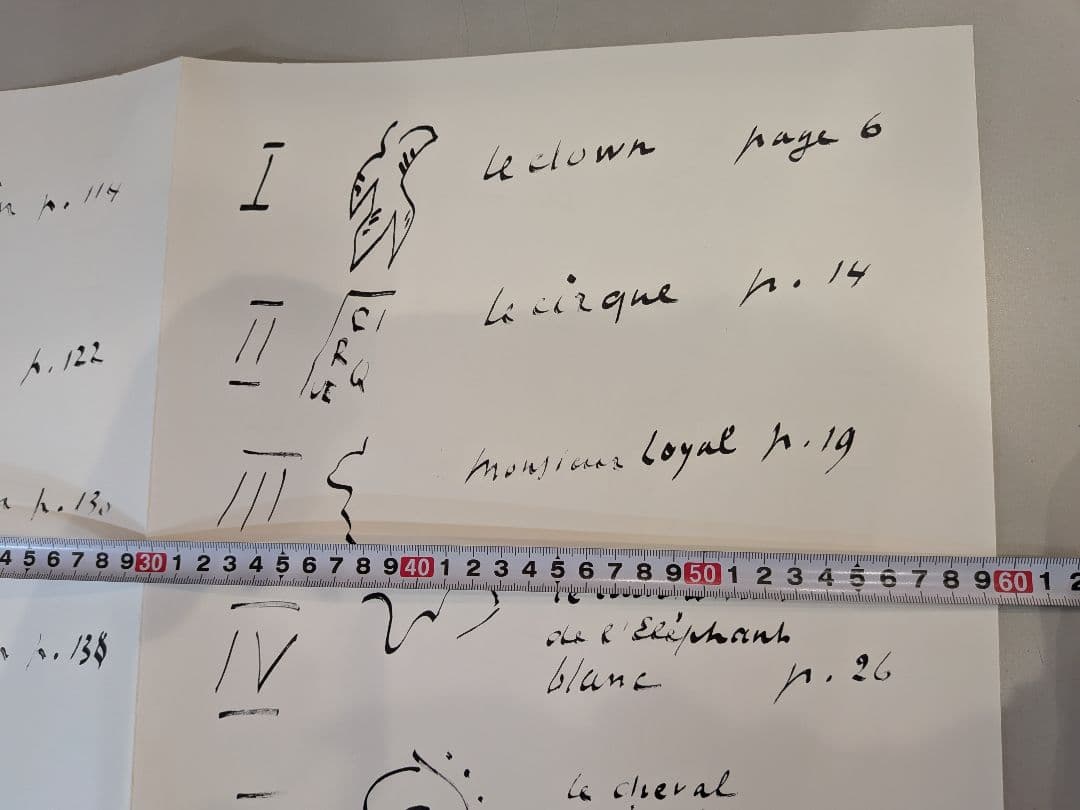 I le clown page 6
p. 114
II CIRQUE le cirque p. 14
p. 122
III monsieur Loyal p. 19
p. 130
4 5 6 7 8 9 30 1 2 3 4 5 6 7 8 9 40 1 2 3 4 5 6 7 8 9 50 1 2 3 4 5 6 7 8 9 60 1 2
IV
de l'Eléphant
p. 138
blanc p. 26
le cheval